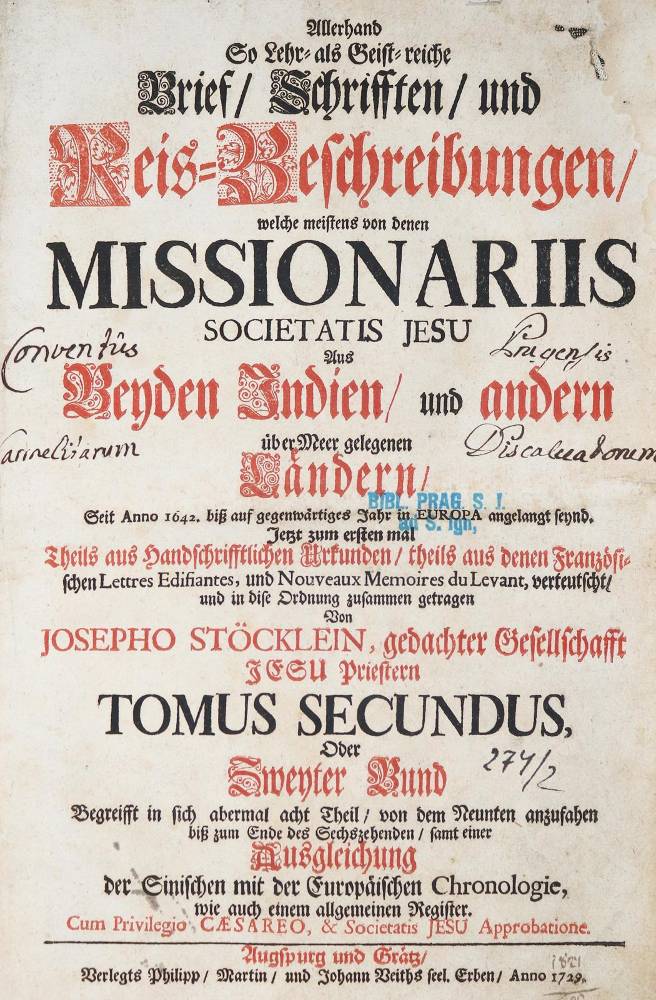 Allerhand
So Lehr- als Geist-reiche
Brief/ Schrifften/ und
Reis-Beschreibungen/
welche meistens von denen
MISSIONARIIS
SOCIETATIS JESU
Conventûs
Pragensis
Aus
Beyden Indien/ und andern
Carmelitarum
über Meer gelegenen
Discalceatorum
Ländern/
BIBL. PRAG. S. I.
ad S. Ign,
Seit Anno 1642. biß auf gegenwärtiges Jahr in EUROPA angelangt seynd.
Jetzt zum ersten mal
Theils aus Handschrifftlichen Urkunden/ theils aus denen Französi-
schen Lettres Edifiantes, und Nouveaux Memoires du Levant, verteutscht/
und in dise Ordnung zusammen getragen
Von
JOSEPHO STÖCKLEIN, gedachter Gesellschafft
JESU Priestern
TOMUS SECUNDUS,
Oder
Zweyter Bund
274/2
Begreifft in sich abermal acht Theil/ von dem Neunten anzufahen
biß zum Ende des Sechszehenden/ samt einer
Ausgleichung
der Sinischen mit der Europäischen Chronologie,
wie auch einem allgemeinen Register.
Cum Privilegio CÆSAREO, & Societatis JESU Approbatione.
Augspurg und Grätz/
Verlegts Philipp/ Martin/ und Johann Veiths seel. Erben/ Anno 1729.